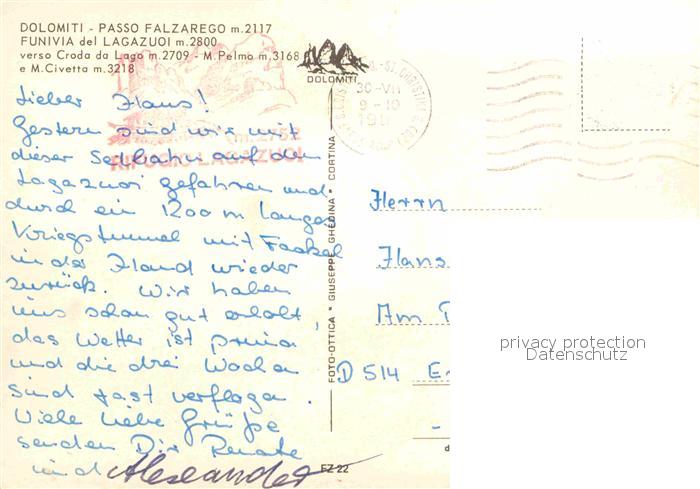 DOLOMITI - PASSO FALZAREGO m.2117
FUNIVIA del LAGAZUOI m.2800
verso Croda da Lago m.2709 - M.Pelmo m.3168
e M.Civetta m.3218
DOLOMITI
30-VII
9-10
m.2752
RIFUGIO LAGAZUOI
Lieber Hans!
Gestern sind wir mit
dieser Seilbahn auf den
Lagazuoi gefahren und
durch ein 1200 m langen
Kriegstunnel mit Fackel
in der Hand wieder
zurück. Wir haben
uns schon gut erholt,
das Wetter ist prima
und die drei Wochen
sind fast verflogen.
Viele liebe Grüße
senden Dir Renate
und Alexander
FOTO-OTTICA * GIUSEPPE GHEDINA * CORTINA
EZ 22
Herrn
Hans
Am
D 514 E
privacy protection
Datenschutz